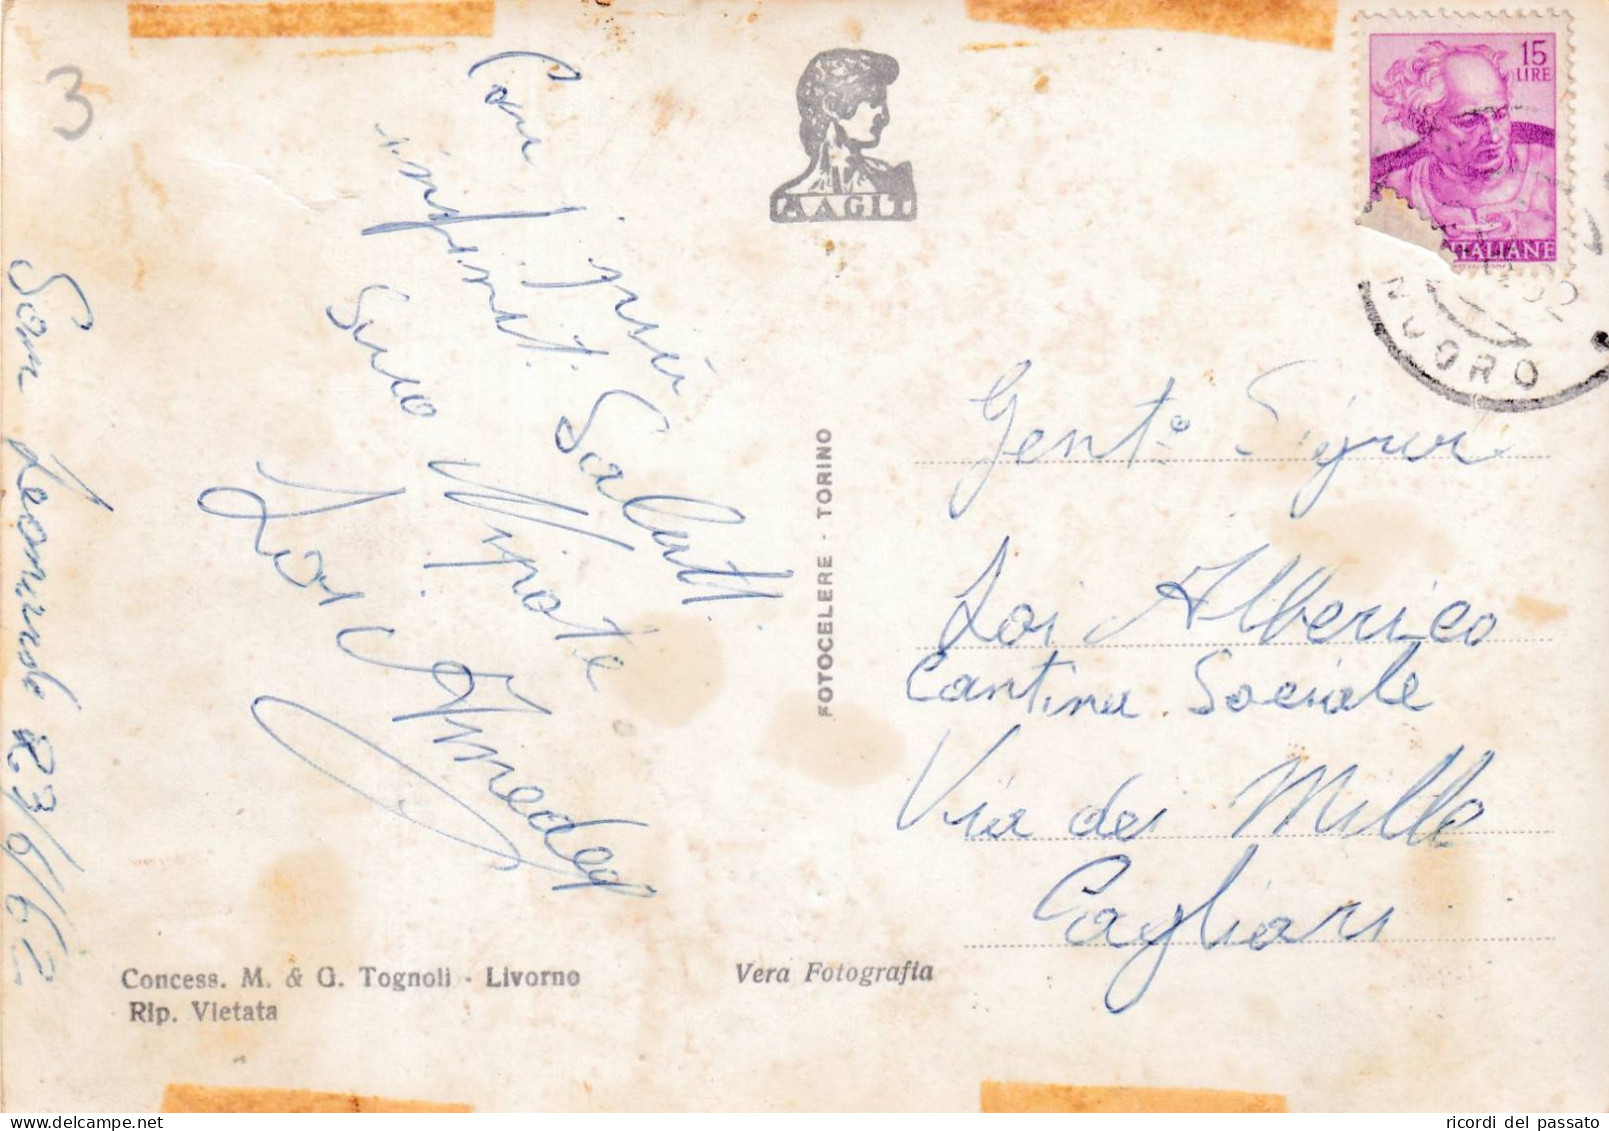 3
San Leonardo 23/6/62
Con i più
infinit. Saluti
Suo Nipote
Loi Amedeo
AAGIT
FOTOCELERE - TORINO
15
LIRE
ITALIANE
NUORO
Gent° Signor
Loi Alberico
Cantina Sociale
Via dei Mille
Cagliari
Concess. M. & G. Tognoli - Livorno
Rip. Vietata
Vera Fotografia
ricordi del passato